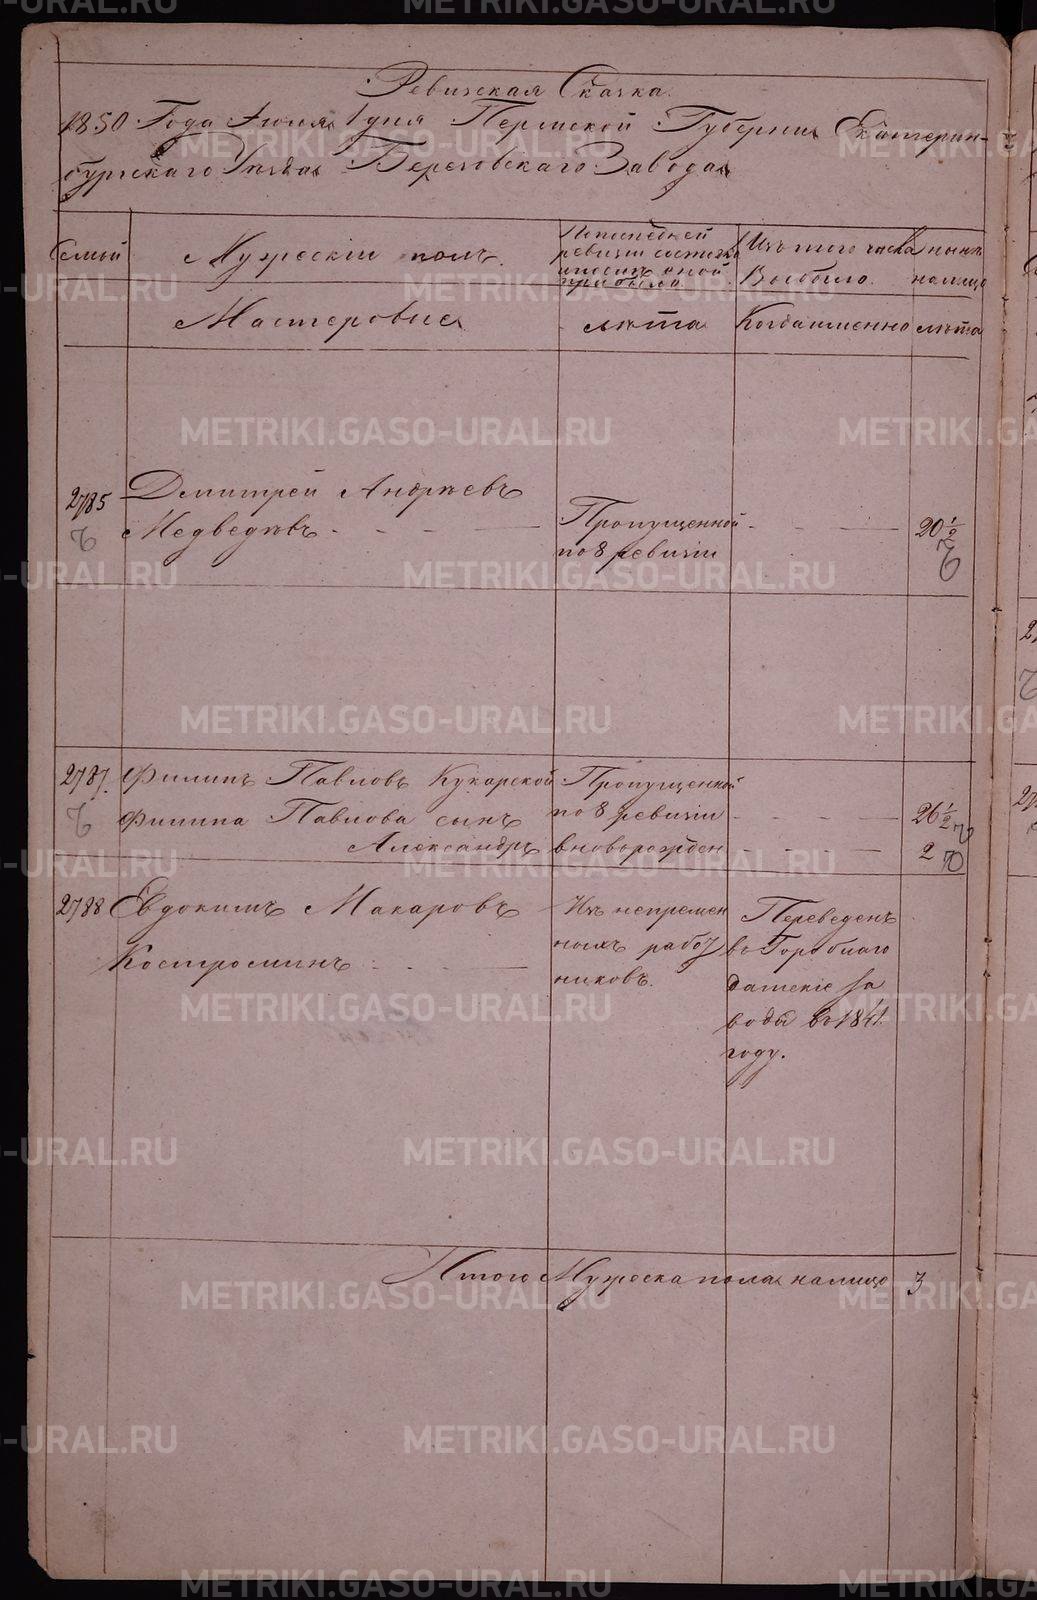 Ревизская Сказка.
1850 Года Июня 1 дня Пермской Губернии Екатерин-
бургскаго Уезда Березовскаго Завода
Семьи
Мужескiй полъ.
По последней
ревизiи состояло
и после оной
прибыло
Изъ того числа
Выбыло.
ныне
на лицо
Мастеровые
лета
Когда именно
лета
2785
Дмитрей Андреевъ
Медведевъ
Пропущенной
по 8 ревизiи
20 1/2
2787.
Филипъ Павловъ Кукарской
Пропущенной
по 8 ревизiи
26 1/2
Филипа Павлова сынъ
Александръ
вновьрожден
2
2788
Евдокимъ Макаровъ
Костроминъ
Изъ непремен
ныхъ работ
никовъ.
Переведенъ
въ Гороблаго
датскiе за
воды въ 1841
году.
Итого Мужеска пола налицо 3
METRIKI.GASO-URAL.RU